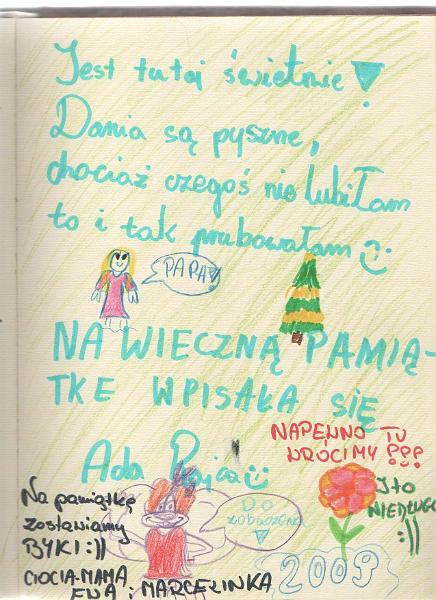 Jest tutaj świetnie!
Dania są pyszne,
chociaż czegoś nie lubiłam
to i tak prubowałam
PAPA!
NA WIECZNĄ PAMIĄ-
TKE WPISAŁA SIĘ
Ada
NAPEWNO TU
WRÓCIMY !!!
I TO
NIEDŁUGO
:))
Do
zobaczenia
!
Na pamiątkę
zostawiamy
BYKI :))
CIOCIA-MAMA
EWA i MARCELINKA
2009